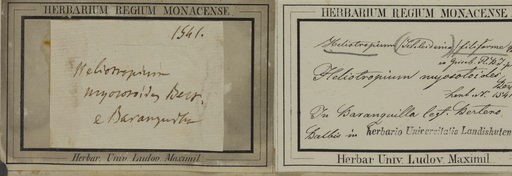 HERBARIUM REGIUM MONACENSE
1541.
Heliotropium
myosotoides Bert.
e Baranquilla
Herbar. Univ. Ludov. Maximil.
HERBARIUM REGIUM MONACENSE
Heliotropium (Schleidenia) filiforme
Heliotropium myosotoides
herb. N. 1541
In Baranquilla leg. Bertero
Balbis in Herbario Universitatis Landishuten
Herbar Univ. Ludov. Maximil.